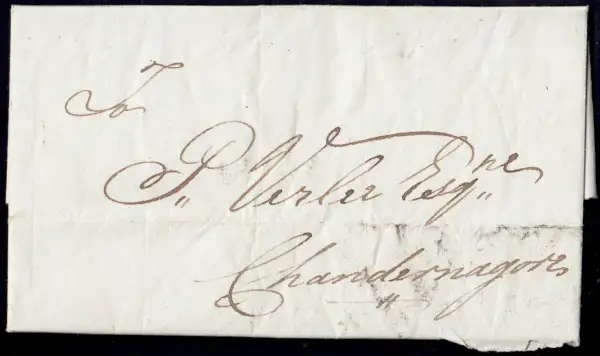 To
P,, Verlee Esqre,,
Chandernagore